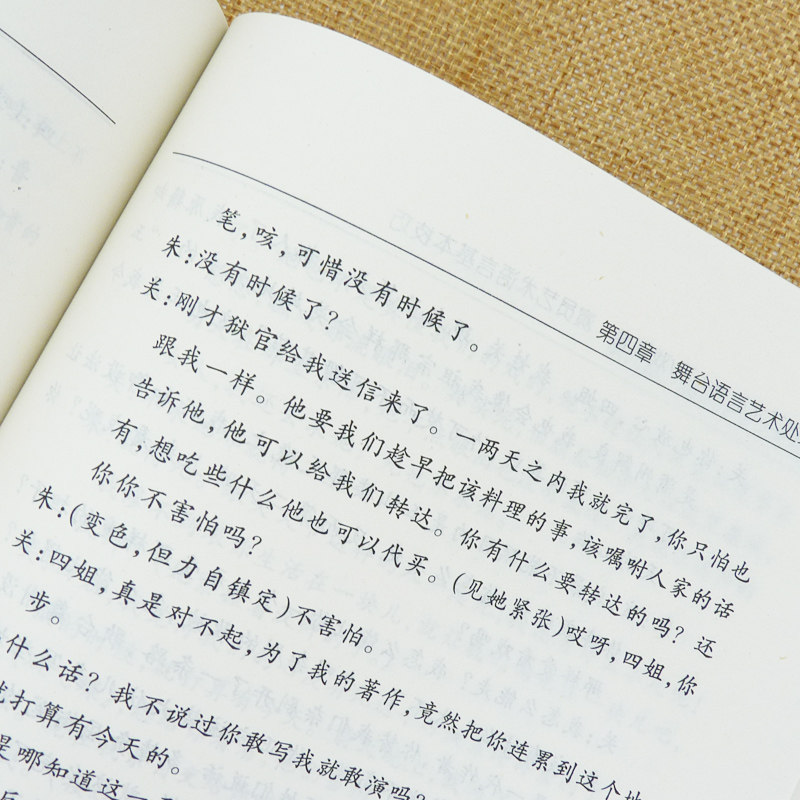 第四章 舞台语言艺术处
笔，咳，可惜没有时候了。
朱：没有时候了？
关：刚才狱官给我送信来了。一两天之内我就完了，你只怕也
跟我一样。他要我们趁早把该料理的事，该嘱咐人家的话
告诉他，他可以给我们转达。你有什么要转达的吗？还
有，想吃些什么他也可以代买。（见她紧张）哎呀，四姐，你
你你不害怕吗？
朱：（变色，但力自镇定）不害怕。
关：四姐，真是对不起，为了我的著作，竟然把你连累到这个地
步。
什么话？我不说过你敢写我就敢演吗？
打算有今天的。
是哪知道这一